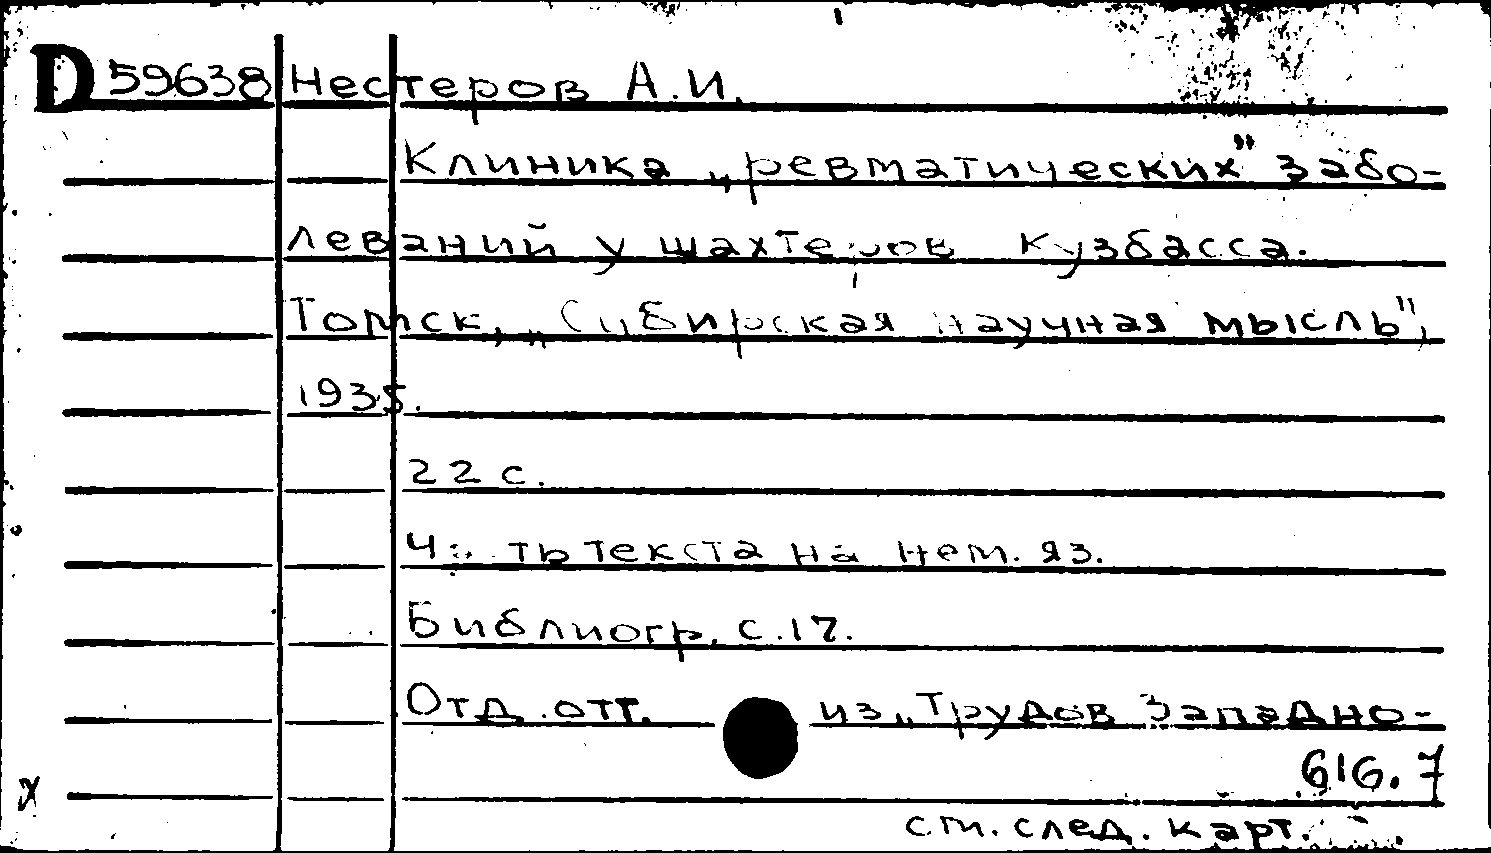 D 59638 Нестеров А.И.
Клиника „ревматических" забо-
леваний у шахтеров Кузбасса.
Томск, „Сибирская научная мысль",
1935.
22 с.
Часть текста на нем. яз.
Библиогр. с.17.
Отд. отт. из „Трудов Западно-
616.7
х
см. след. карт.